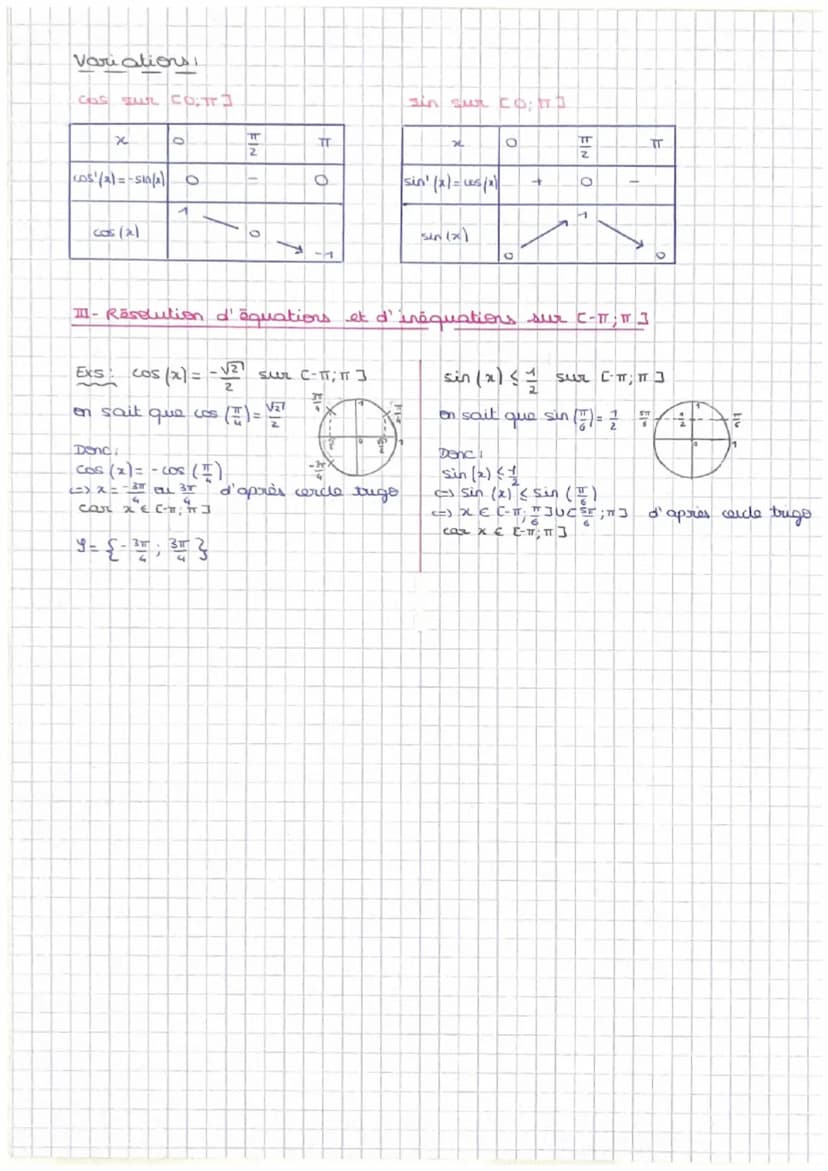 Variations:
cos sur [0;π]
x 0 π/2 π
cos'(x)=-sin(x) 0 - 0
cos(x) 1 0 -1
sin sur [0;π]
x 0 π/2 π
sin'(x)=cos(x) + 0 -
sin(x) 0 1 0
III- Résolution d'équations et d'inéquations sur [-π;π]
Exs: cos(x)= -√2/2 sur [-π;π]
on sait que cos(π/4)= √2/2
Donc:
cos(x)= -cos(π/4)
<=> x= -3π/4 ou 3π/4 d'après cercle trigo
car x ∈ [-π;π]
S= {-3π/4 ; 3π/4}
3π/4 1 π/4
0 1
-3π/4
sin(x) ≤ 1/2 sur [-π;π]
on sait que sin(π/6)= 1/2
Donc:
sin(x) ≤ 1/2
<=> sin(x) ≤ sin(π/6)
<=> x ∈ [-π;π/6]∪[5π/6;π] d'après cercle trigo
car x ∈ [-π;π]
5π/6 1/2 1 π/6
0 1